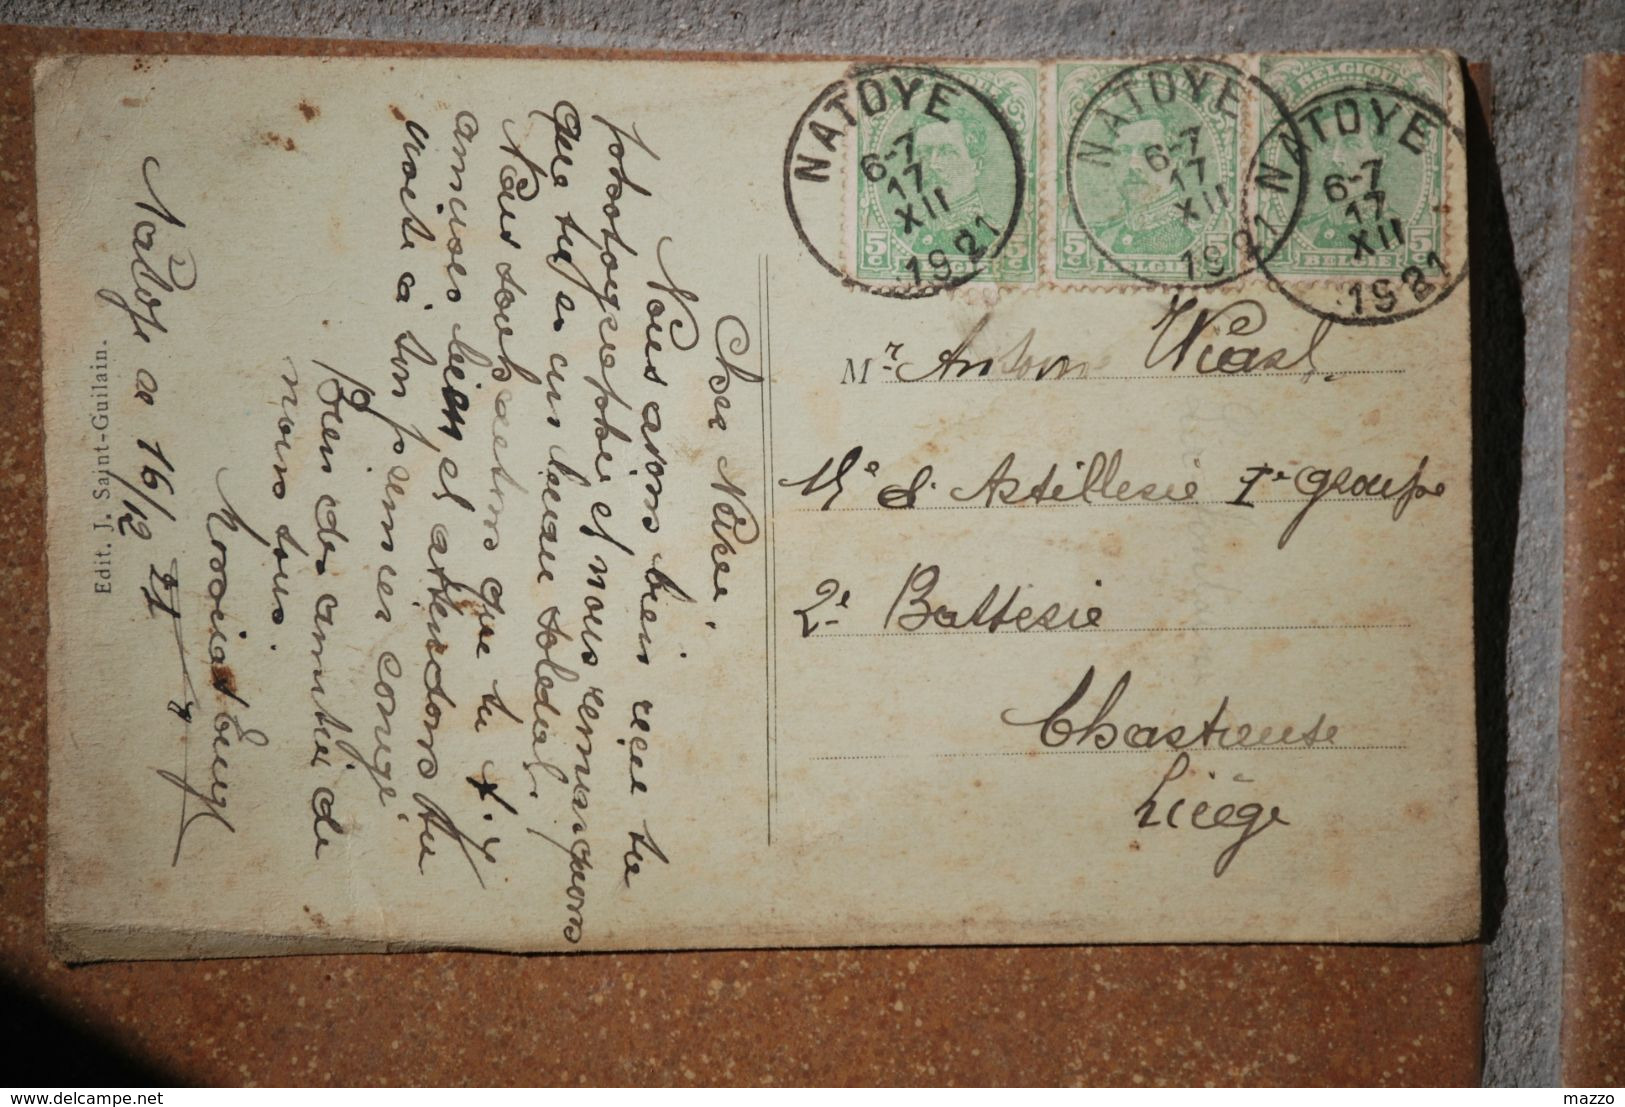 NATOYE
6-7
17
XII
1921
NATOYE
6-7
17
XII
1921
NATOYE
6-7
17
XII
1921
BELGIQUE
5c BELGIE 5c
5c BELGIE
BELGIQUE
5c BELGIE 5c
Mr Antoine
15e d'Artillerie 1r groupe
2e Batterie
Chartreuse
Liége
Cher
Nous avons bien reçu ta
photographie et nous remarquons
que tu es un beau soldat.
Nous souhaitons que tu t'y
amuses bien et attendons ta
visite à ton premier congé
Bien des amitiés de
nous tous.
Natoye le 16/12 21
Edit. J. Saint-Guilain.
delcampe.net
mazzo